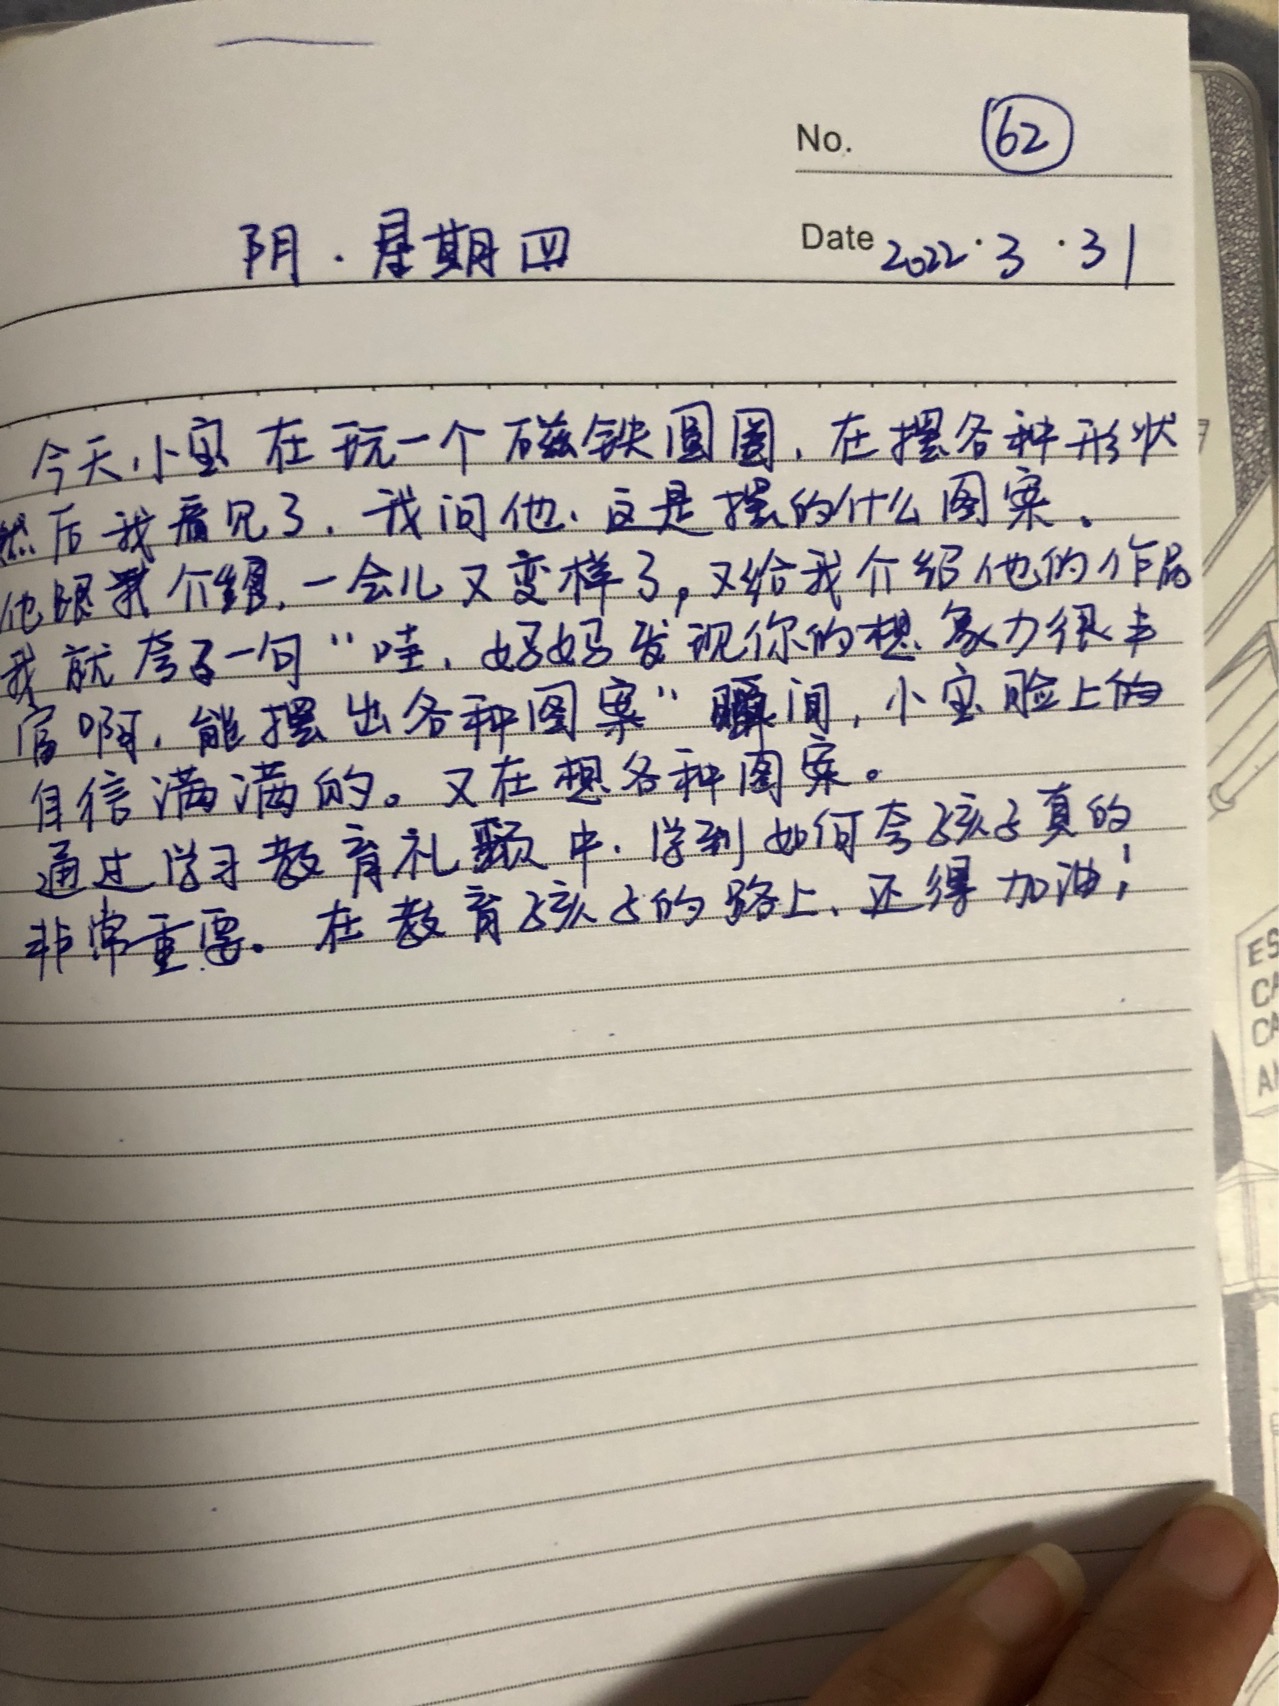 No. 62
阴.星期四
Date 2022.3.31
今天,小宝在玩一个磁铁圆圈,在摆各种形状
然后我看见了,我问他,这是摆的什么图案。
他跟我介绍,一会儿又变样了,又给我介绍他的作品
我就夸了一句“哇,妈妈发现你的想象力很丰
富啊,能摆出各种图案”瞬间,小宝脸上的
自信满满的。又在想各种图案。
通过学习教育礼颗中.学到如何夸孩子真的
非常重要。在教育孩子的路上、还得加油!
ES
CA
CA
AN